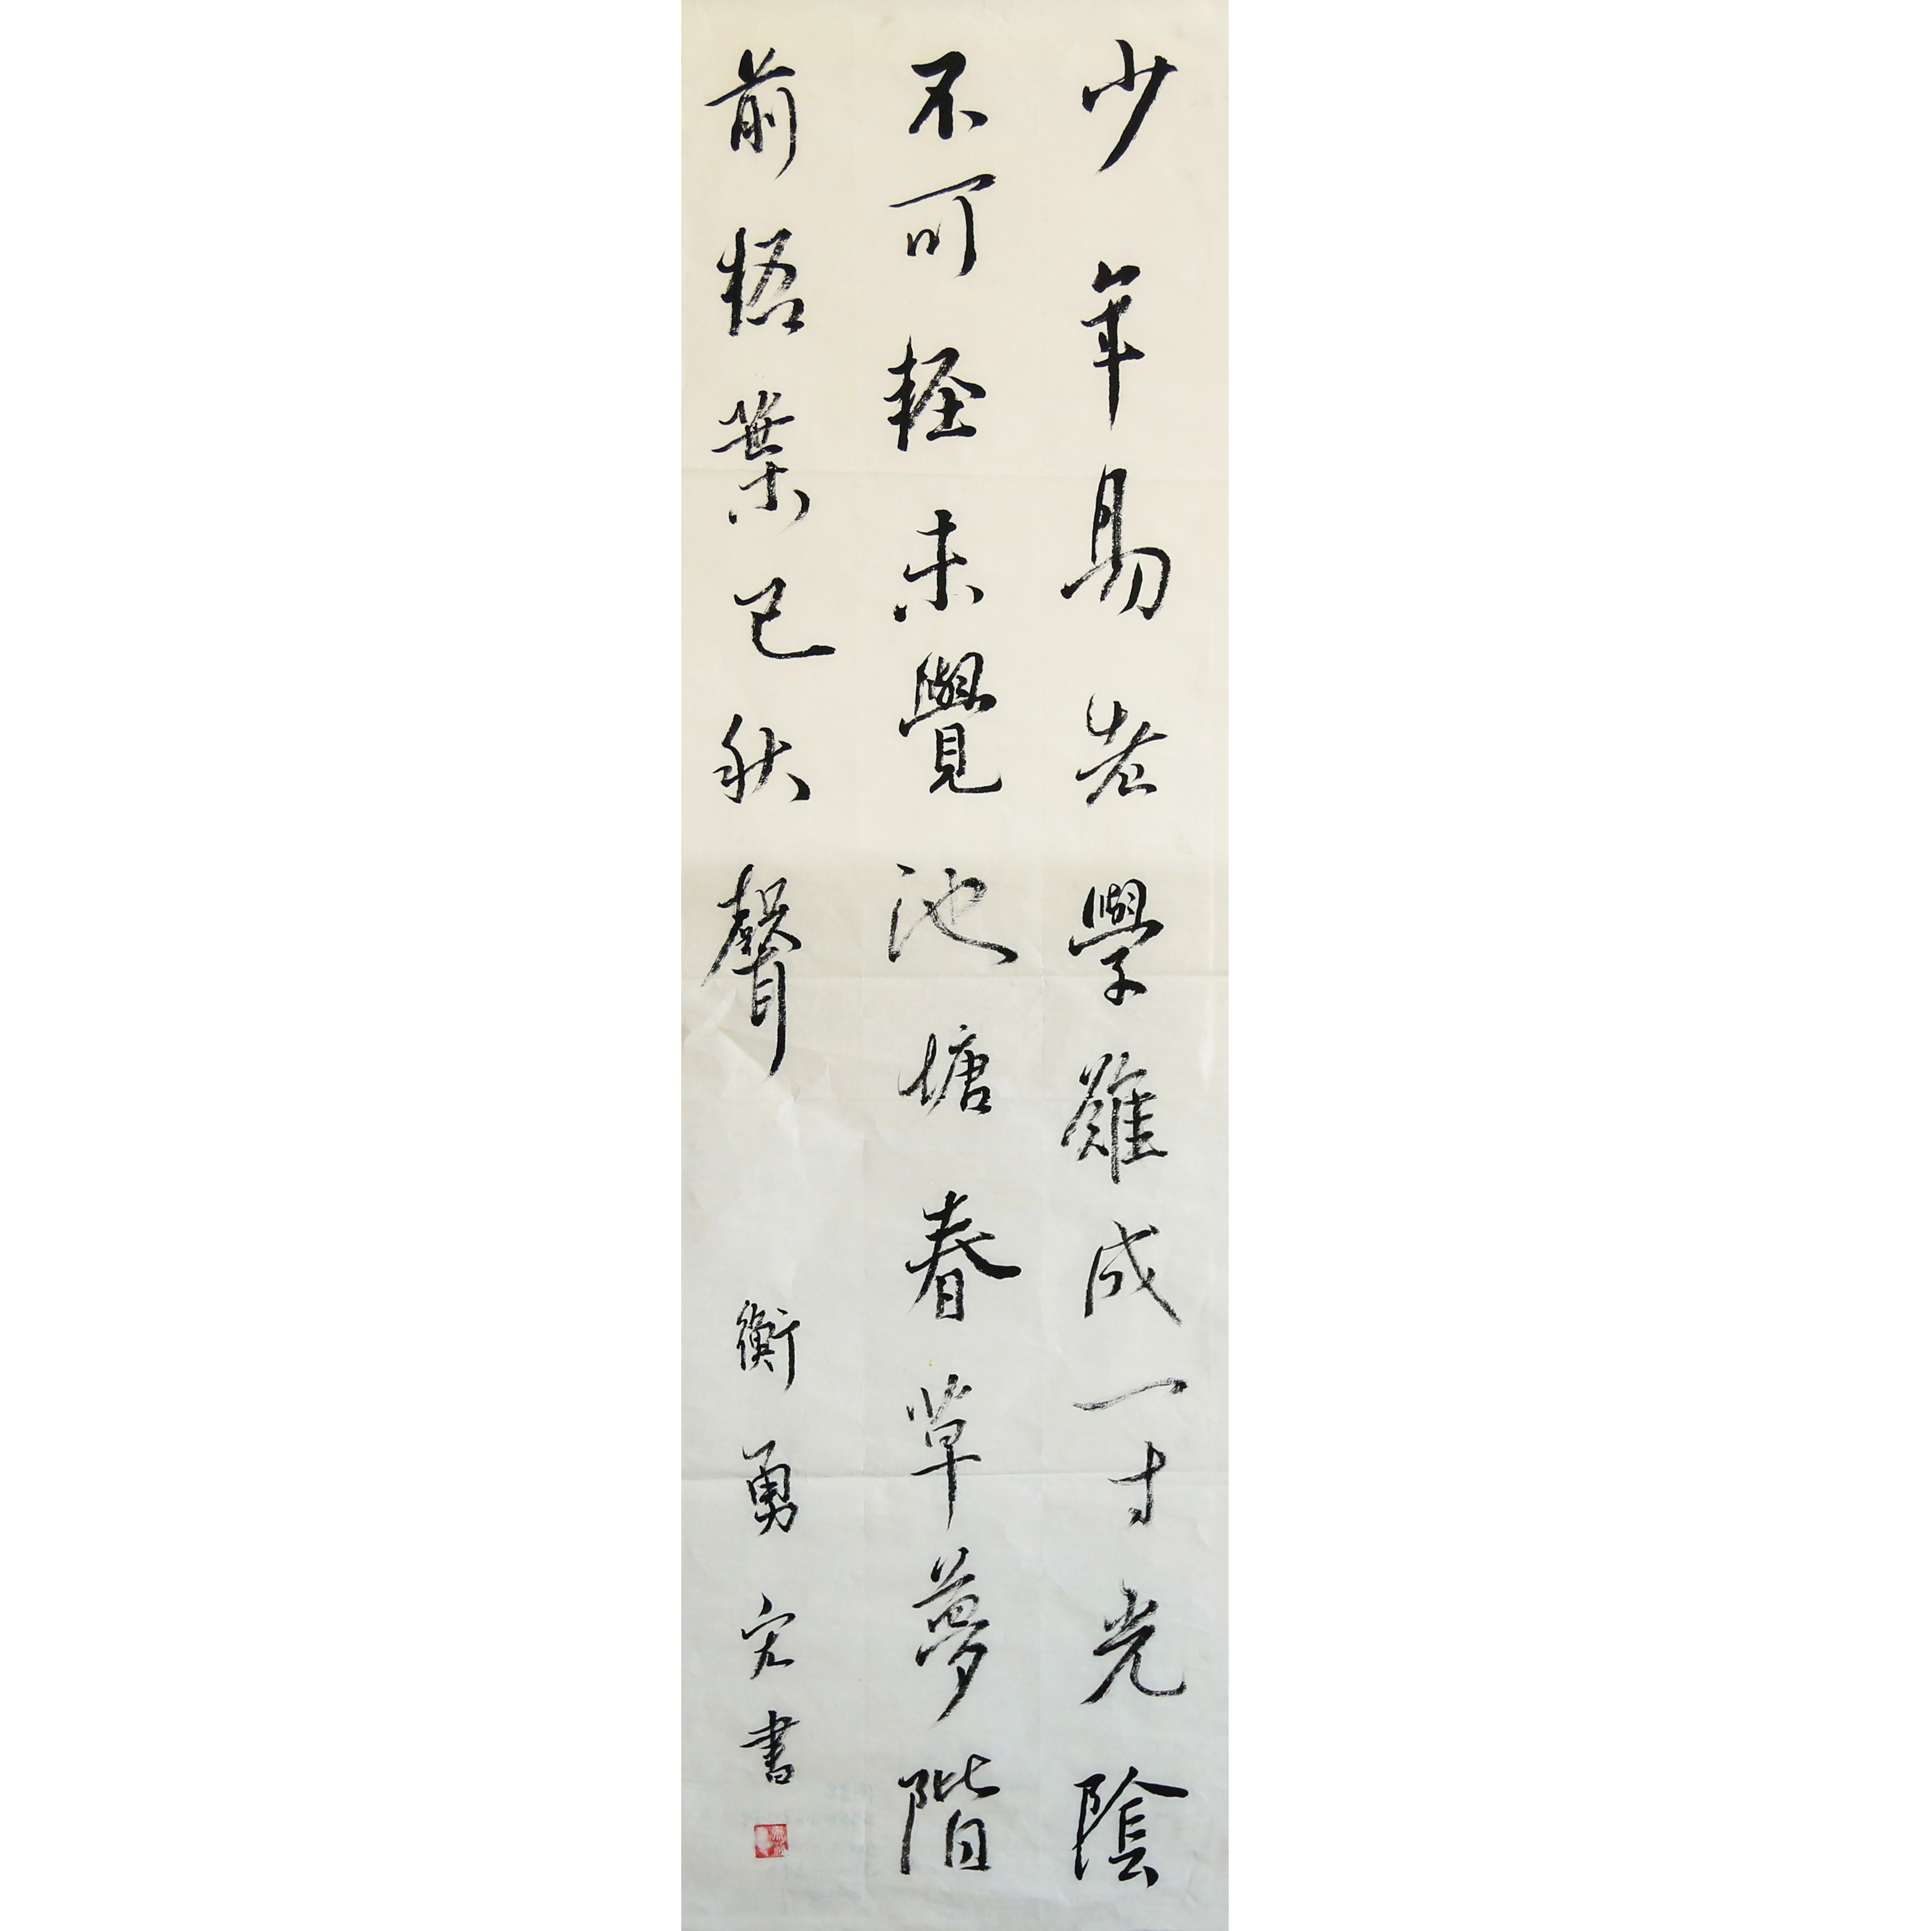 少年易老學難成一寸光陰
不可輕未覺池塘春草夢階
前梧葉已秋聲
衡勇
书